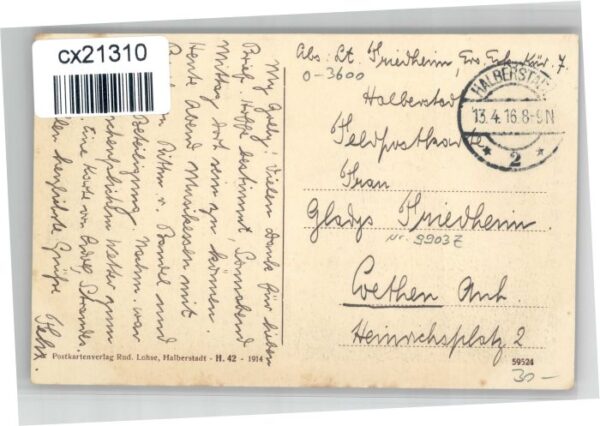 cx21310
Abs: Lt. Friedheim, Ers. Esk. Kür. 7.
0-3600
Halberstadt
HALBERSTADT
13.4.16.8-9N
* 2 *
Feldpostkarte
Frau
Gladys Friedheim.
Nr. 9903Z
Coethen Anh.
Heinrichsplatz 2
My Gladys! Vielen Dank für lieben
Brief. Hoffe bestimmt, Sonnabend
Mittag dort sein zu können.
Heute Abend Musikessen mit
Rittm. v. Bandel und
Beteiligung. Nachm. war
Wetter zum
Eine Karte von
herzlichste Grüße
Felix
Postkartenverlag Rud. Lohse, Halberstadt - H. 42 - 1914
59524
30-